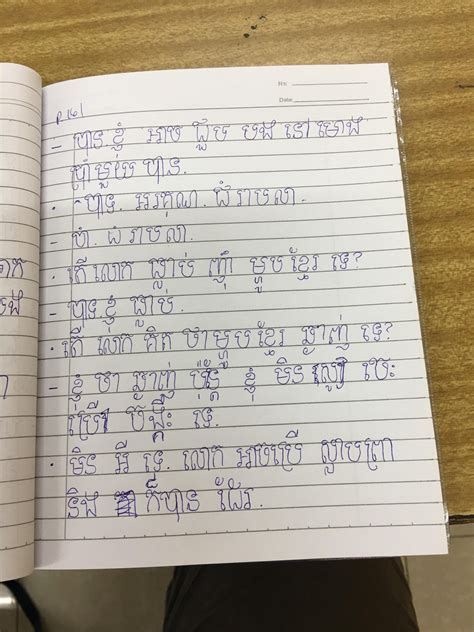 No:
Date:
p 161
- បាន. ខ្ញុំ អាច ជួប បង នៅ ម៉ោង
ប្រាំមួយ បាន.
- បាទ. អរគុណ. ជំរាបលា.
- ចា៎. ជំរាបលា.
· តើ លោក ធ្លាប់ ញ៉ាំ ម្ហូបខ្មែរ ទេ?
- បាទ. ខ្ញុំ ធ្លាប់.
· តើ លោក គិត ថា ម្ហូបខ្មែរ ឆ្ងាញ់ ទេ?
- ខ្ញុំ ថា ឆ្ងាញ់ ប៉ុន្តែ ខ្ញុំ មិន ចេះ
ប្រើ ចង្កឹះ ទេ.
· មិន អី ទេ. លោក អាចប្រើ ស្លាបព្រា
និង ក៏បាន ដែរ.